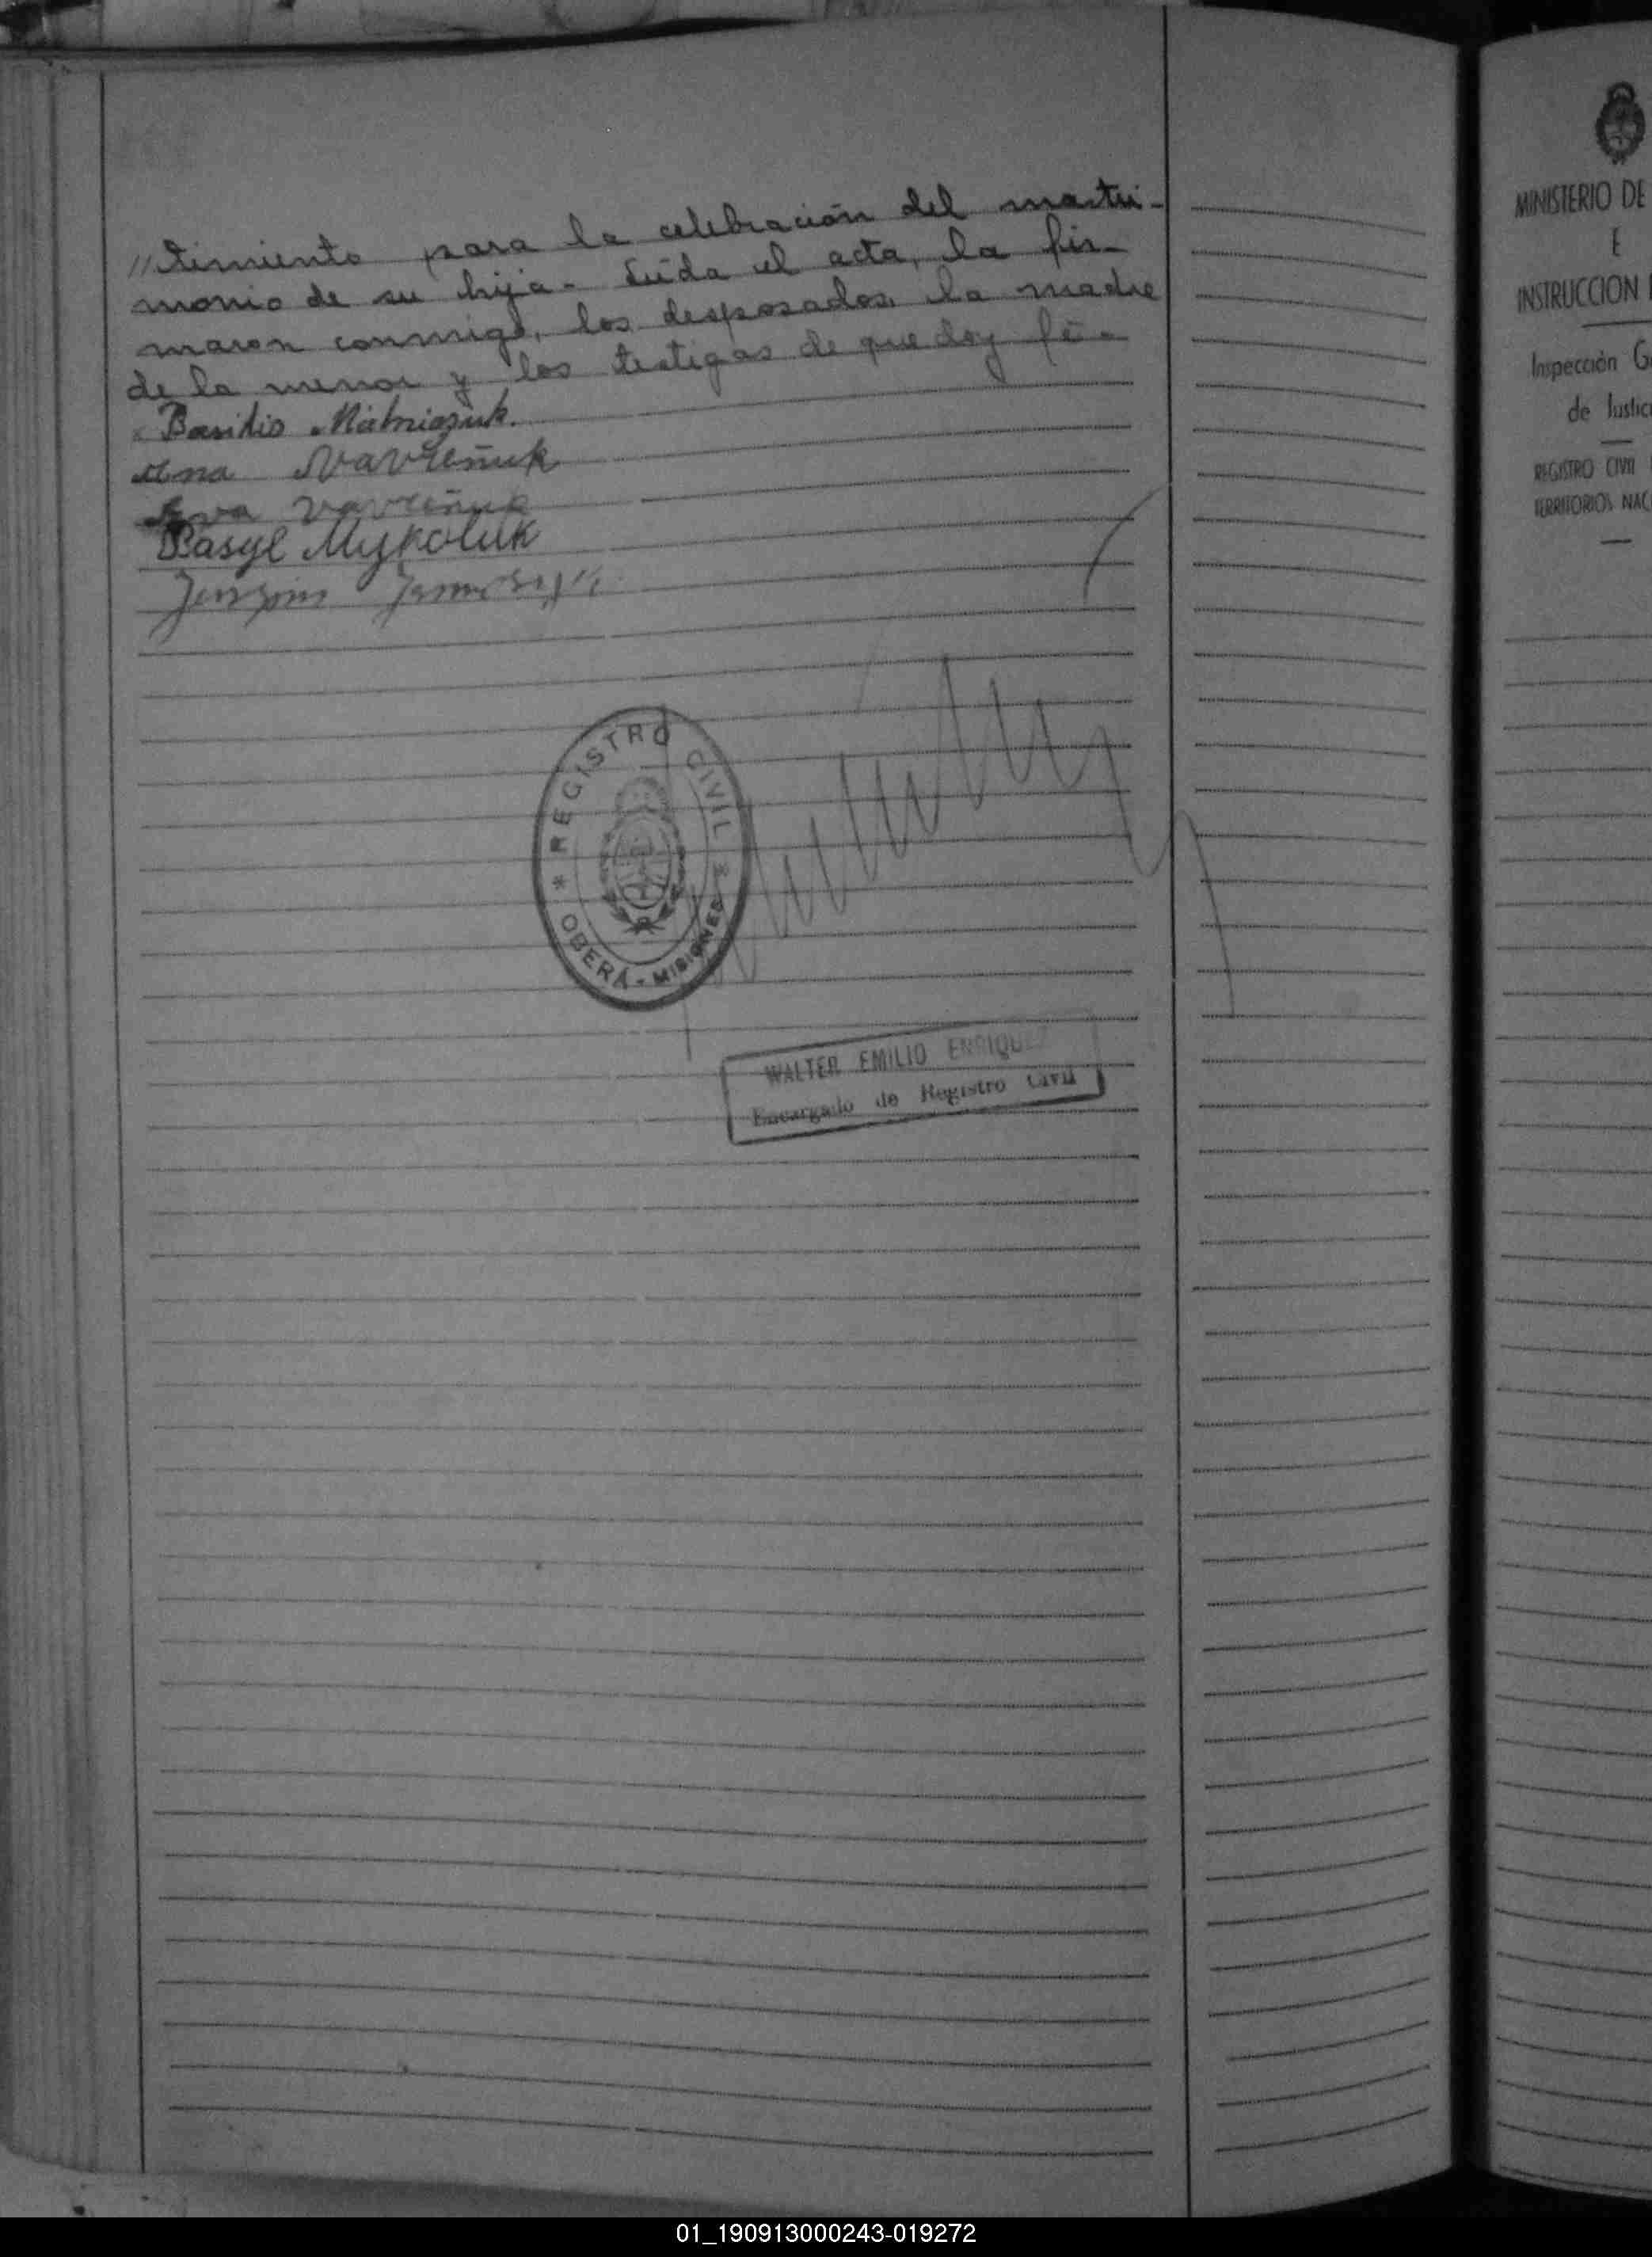 //timiento para la celebración del matri-
monio de su hija - Leída el acta, la fir-
maron conmigo, los desposados, la madre
de la menor y los testigos de que doy fé -
Basilio
Ana Navreñuk
Eva Vavreñuk
Wasyl Mykoluk
* REGISTRO CIVIL *
OBERÁ - MISIONES
WALTER EMILIO ENRIQUEZ
Encargado de Registro Civil
MINISTERIO DE
E
INSTRUCCION
Inspección G
de Justic
REGISTRO CIVIL
TERRITORIOS NAC
01_190913000243-019272